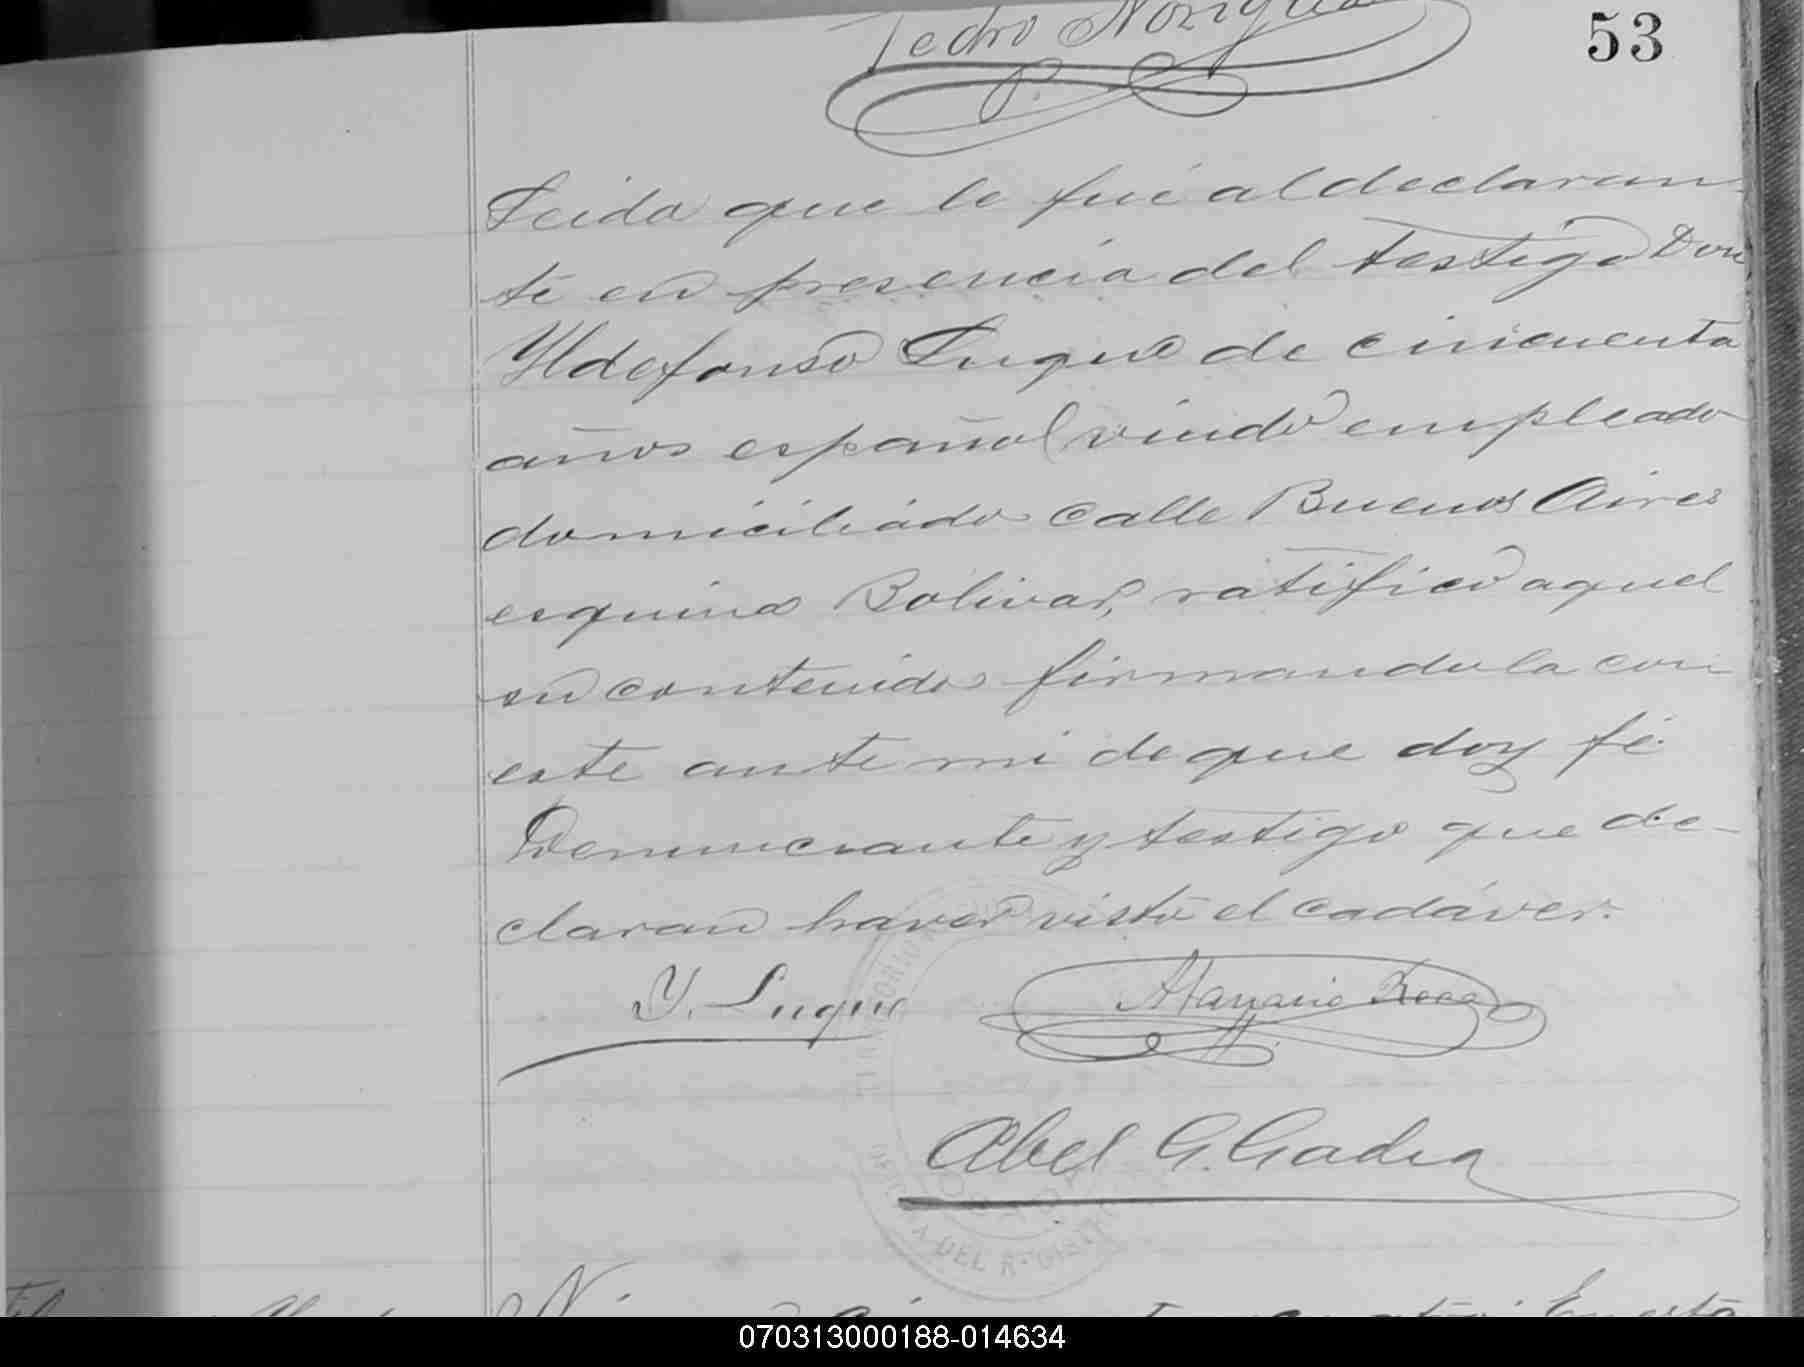 53
Pedro Noriega
P.
Leida que le fué al declaran-
te en presencia del testigo Don
Yldefonso Luque de cincuenta
años español viudo empleado
domiciliado calle Buenos Aires
esquina Bolivar, ratificó aquel
su contenido firmandola con
este ante mi de que doy fé.
Denunciante y testigo que de-
claran haver visto el cadáver.
Y. Luque
Abel G.
DEL
070313000188-014634